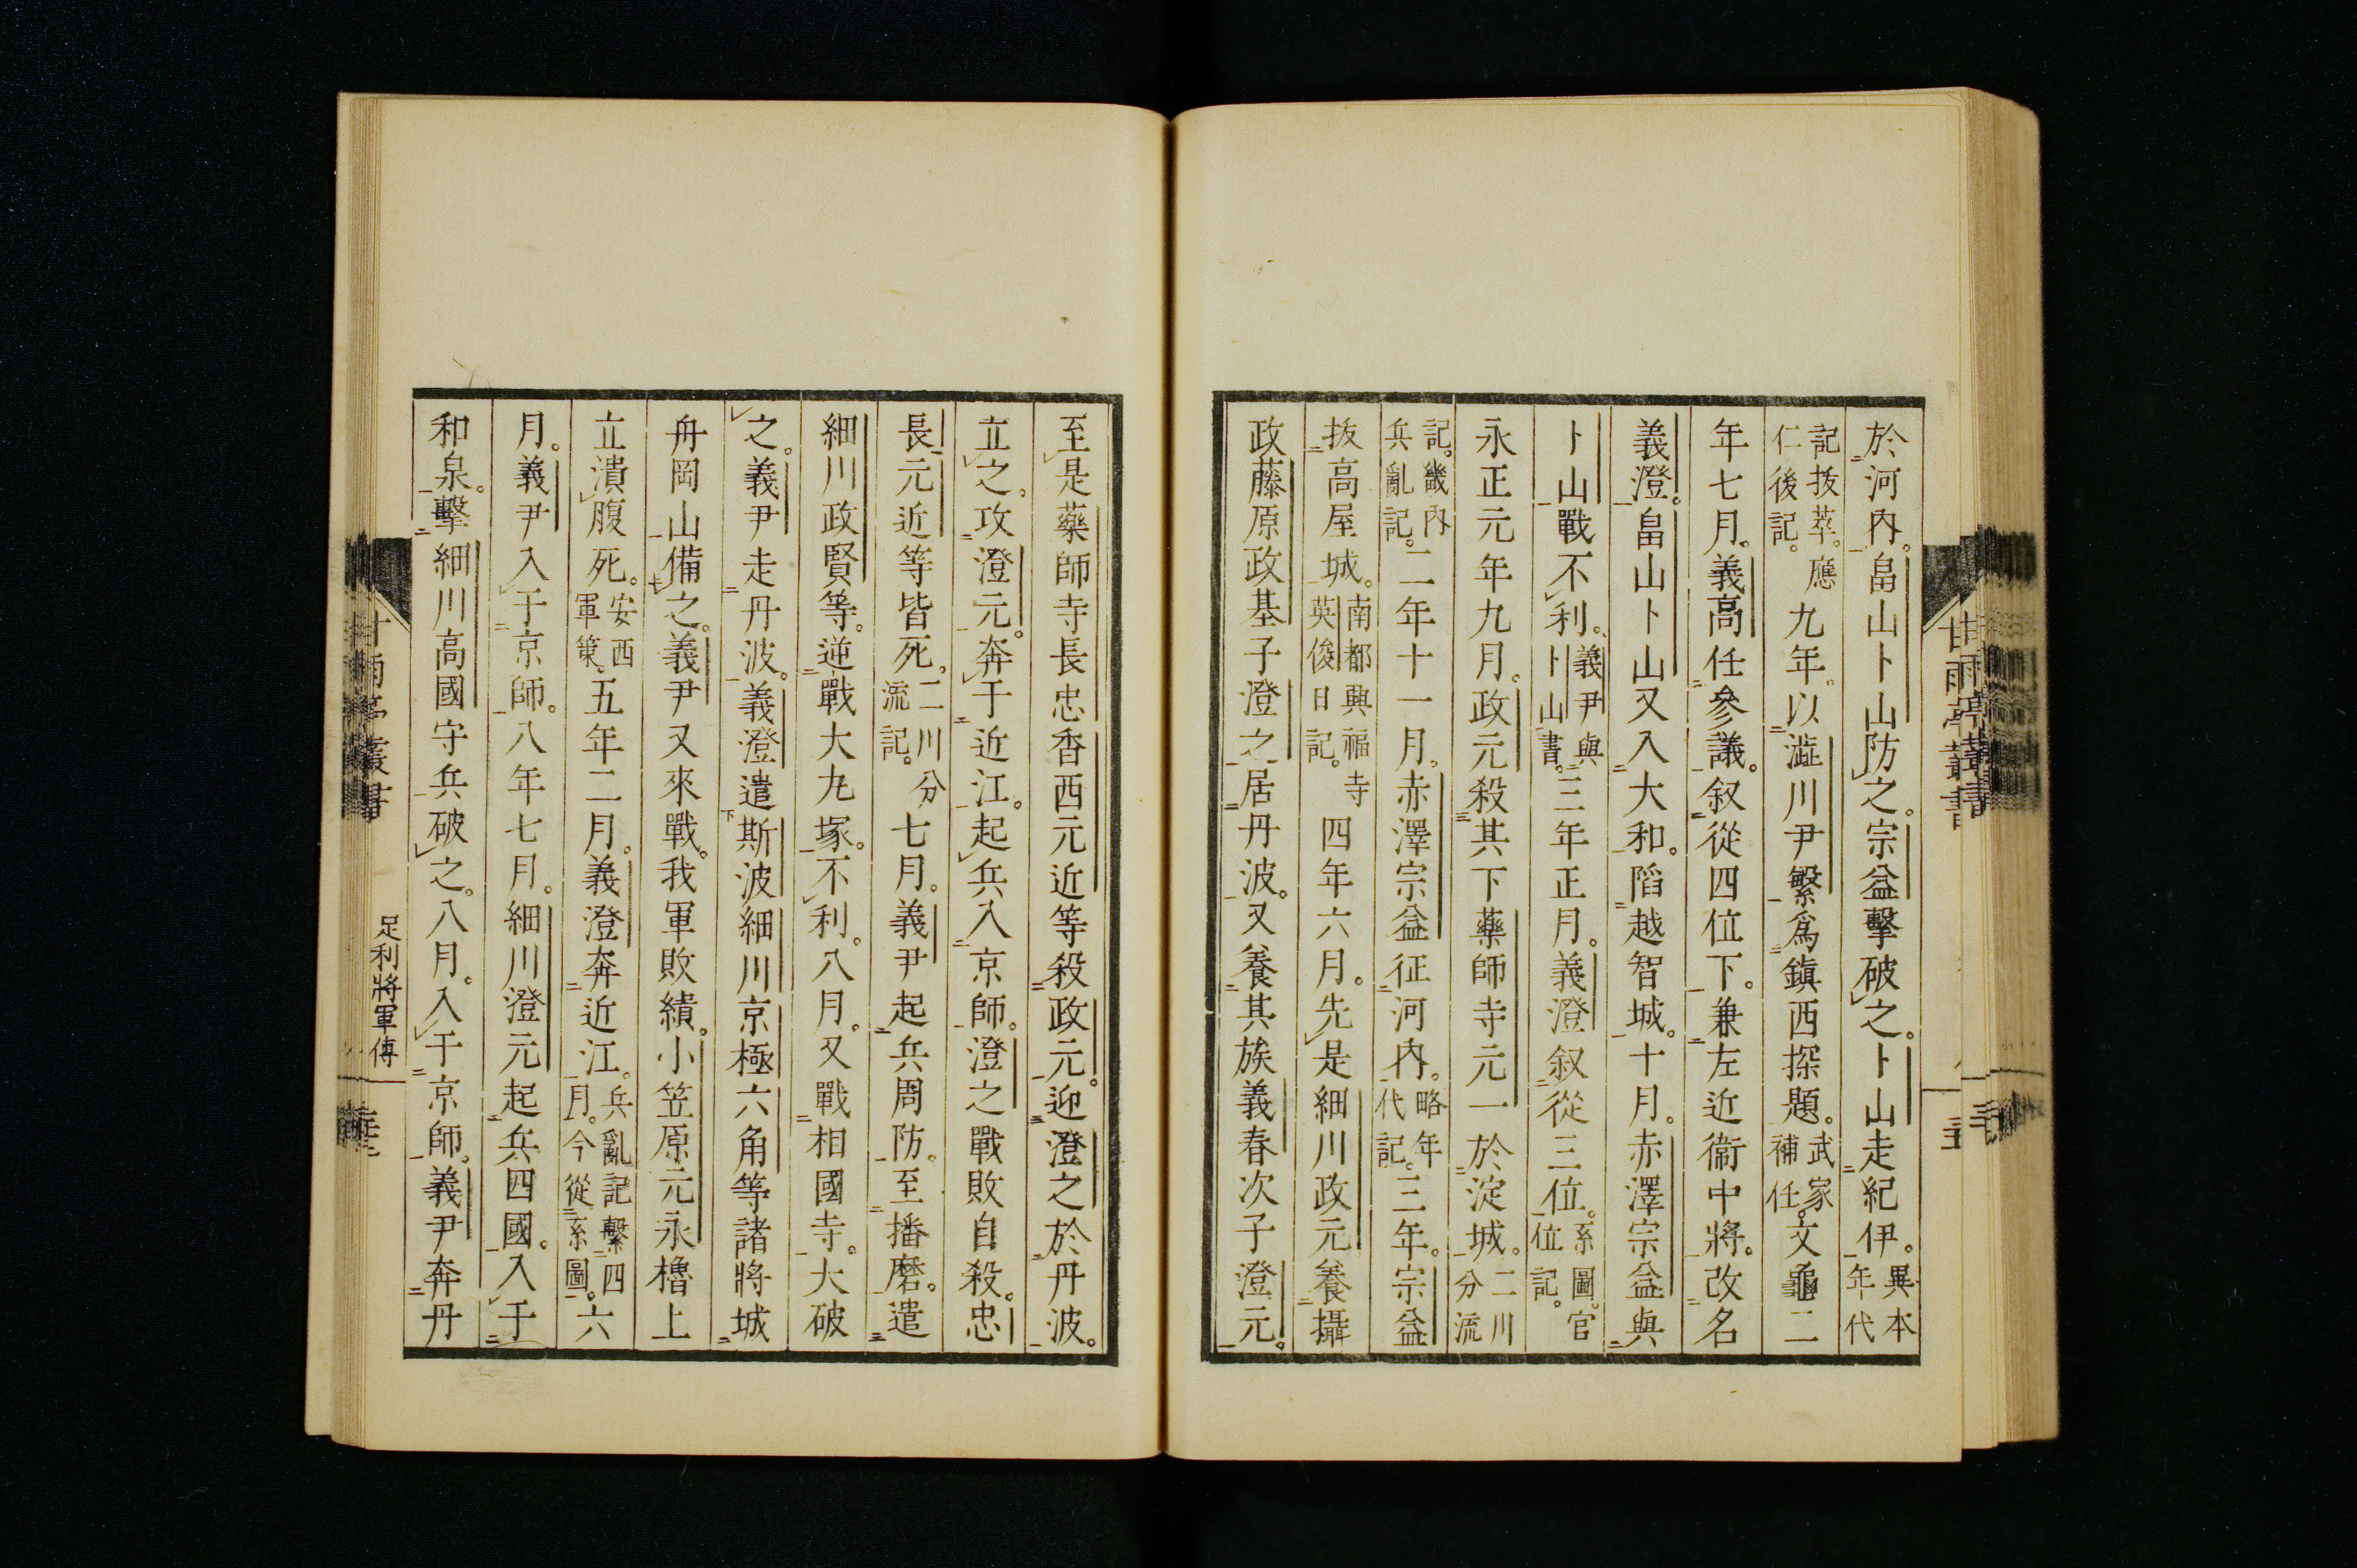 於河內。畠山卜山防之。宗益擊破之。卜山走紀伊。異本年代
記拔萃。應仁後記。九年。以澁川尹繁爲鎭西探題。武家補任。文龜二
年七月。義高任參議。叙從四位下。兼左近衞中將。改名
義澄。畠山卜山又入大和。陷越智城。十月。赤澤宗益與
卜山戰不利。義尹與卜山書。三年正月。義澄叙從三位。系圖。官位記。
永正元年九月。政元殺其下藥師寺元一於淀城。二川分流
記。畿內兵亂記。二年十一月。赤澤宗益征河內。略年代記。三年。宗益
拔高屋城。南都興福寺英俊日記。四年六月。先是細川政元養攝
政藤原政基子澄之居丹波。又養其族義春次子澄元。
甘雨亭叢書
至是藥師寺長忠香西元近等殺政元。迎澄之於丹波。
立之。攻澄元。奔于近江。起兵入京師。澄之戰敗自殺。忠
長元近等皆死。二川分流記。七月。義尹起兵周防。至播磨。遣
細川政賢等。逆戰大九塚。不利。八月。又戰相國寺。大破
之。義尹走丹波。義澄遣斯波細川京極六角等諸將城
舟岡山備之。義尹又來戰。我軍敗績。小笠原元永櫓上
立潰腹死。安西軍策。五年二月。義澄奔近江。兵亂記繫四月。今從系圖。六
月。義尹入于京師。八年七月。細川澄元起兵四國。入于
和泉。擊細川高國守兵破之。八月。入于京師。義尹奔丹
足利將軍傳